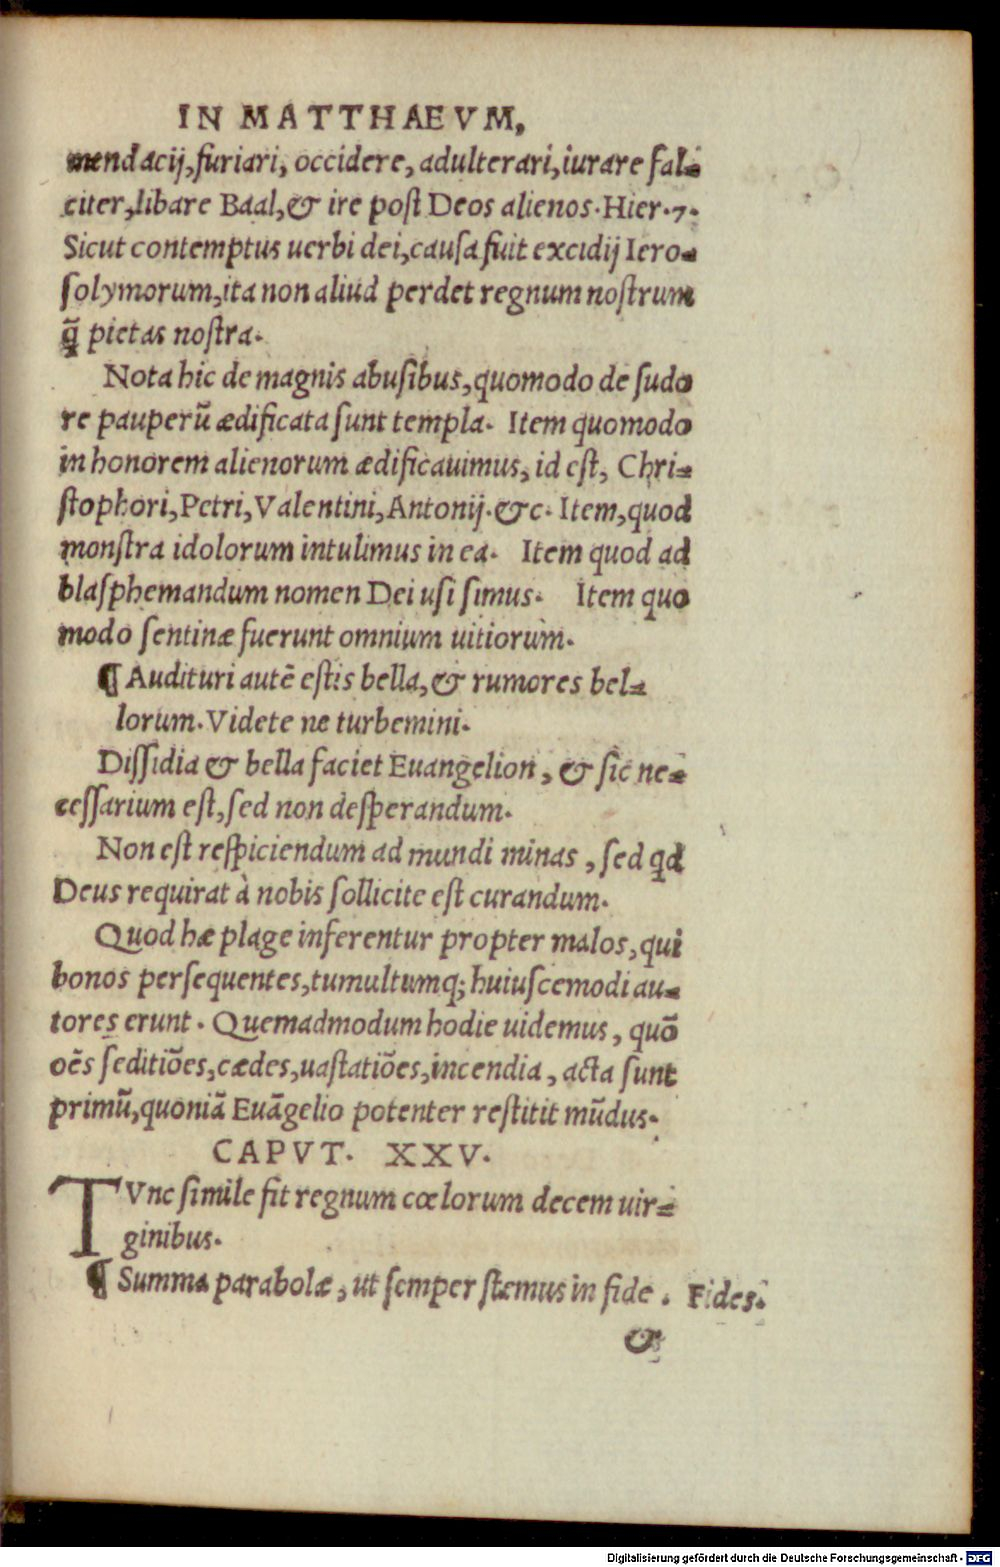 IN MATTHAEVM,
mendacij, furiari, occidere, adulterari, iurare fal-
citer, libare Baal, & ire post Deos alienos. Hier. 7.
Sicut contemptus uerbi dei, causa fuit excidij Iero-
solymorum, ita non aliud perdet regnum nostrum
q̃ pietas nostra.
Nota hic de magnis abusibus, quomodo de sudo
re pauperũ ædificata sunt templa. Item quomodo
in honorem alienorum ædificauimus, id est, Chri-
stophori, Petri, Valentini, Antonij. &c. Item, quod
monstra idolorum intulimus in ea. Item quod ad
blasphemandum nomen Dei usi simus. Item quo
modo sentinæ fuerunt omnium uitiorum.
¶ Audituri autẽ estis bella, & rumores bel-
lorum. Videte ne turbemini.
Dissidia & bella faciet Euangelion, & sic ne-
cessarium est, sed non desperandum.
Non est respiciendum ad mundi minas, sed qd
Deus requirat à nobis sollicite est curandum.
Quod hæ plage inferentur propter malos, qui
bonos persequentes, tumultumq; huiuscemodi au-
tores erunt. Quemadmodum hodie uidemus, quõ
oẽs seditiões, cædes, uastatiões, incendia, acta sunt
primũ, quoniã Euãgelio potenter restitit mũdus.
CAPVT. XXV.
TVnc simile fit regnum cœlorum decem uir-
ginibus.
¶ Summa parabolæ, ut semper stemus in fide. Fides.
&
Digitalisierung gefördert durch die Deutsche Forschungsgemeinschaft - DFG